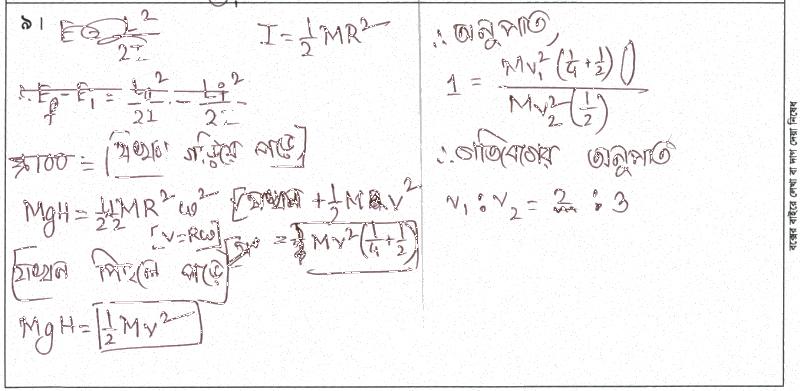 ৯। E = L²/2I    I = ½MR²
∴ E_f - E₁ = L²/2I - L²/2I
[যখন গড়িয়ে পড়ে]
MgH = ½ ½ MR² ω² + ½ M v²
[v = Rω] = Mv² (¼ + ½)
[যখন পিছলে পড়ে]
MgH = ½ Mv²
∴ অনুপাত,
1 = Mv₁² (¼ + ½) / Mv₂² (½)
∴ গতিবেগের অনুপাত
v₁ : v₂ = 2 : 3
বক্সের বাইরে লেখা বা দাগ দেয়া নিষেধ